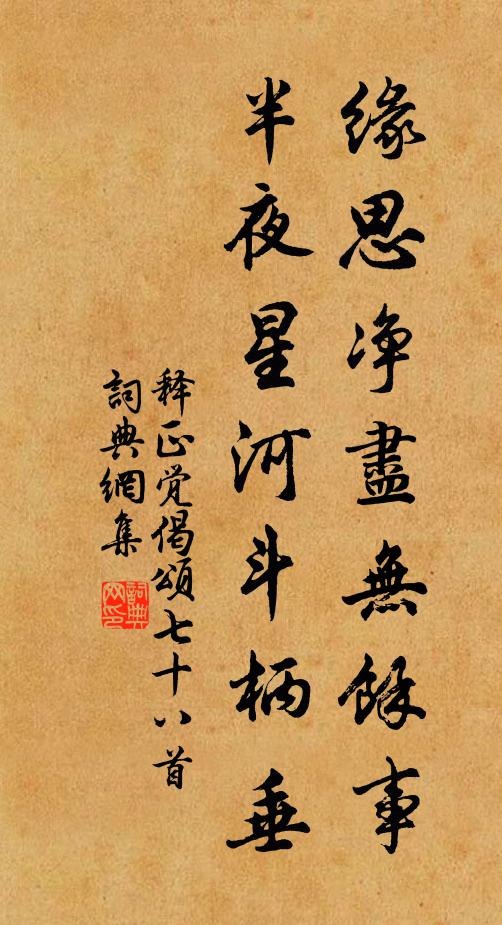 缘思净盡無餘事
半夜星河斗柄垂
释正觉偈頌七十八首
詞典網集
詞典网印